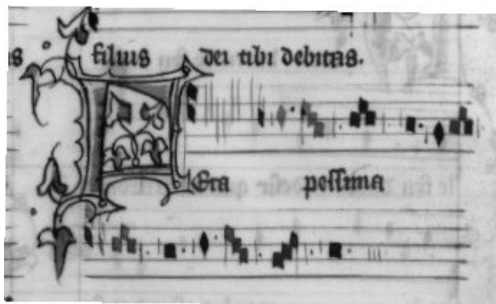 s filius dei tibi debitas.
FEra pessima